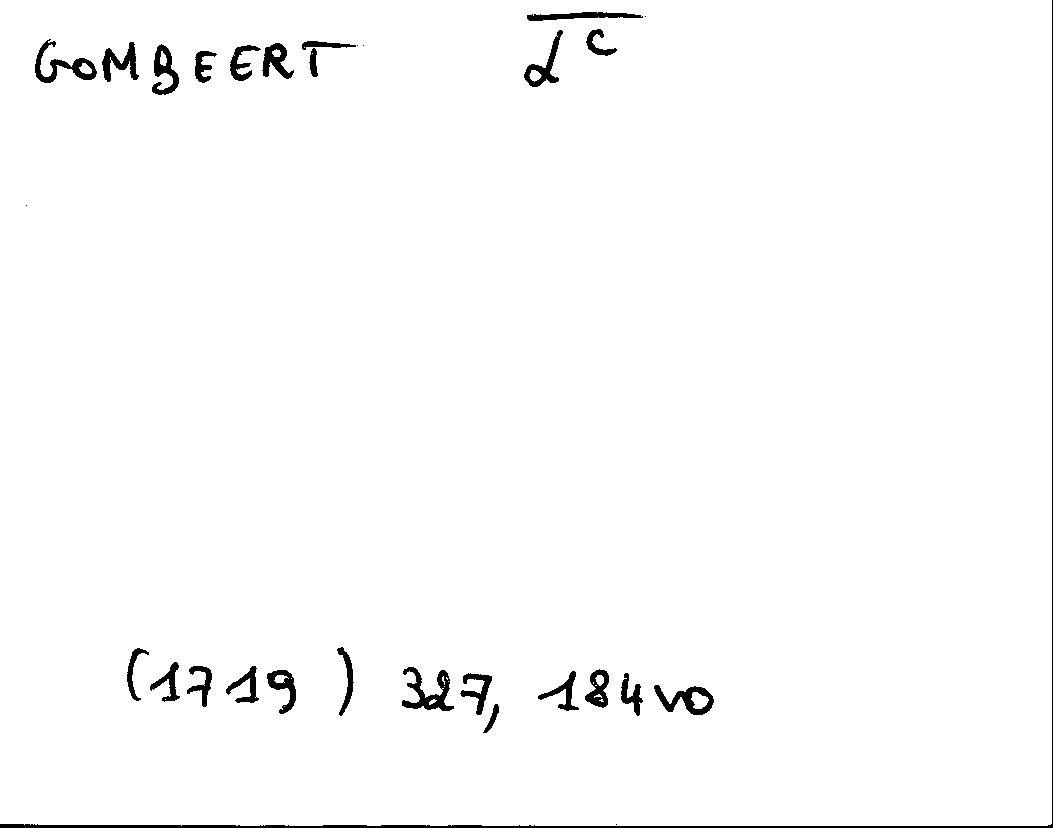 GOMBEERT d^c
(1719) 327, 184vo